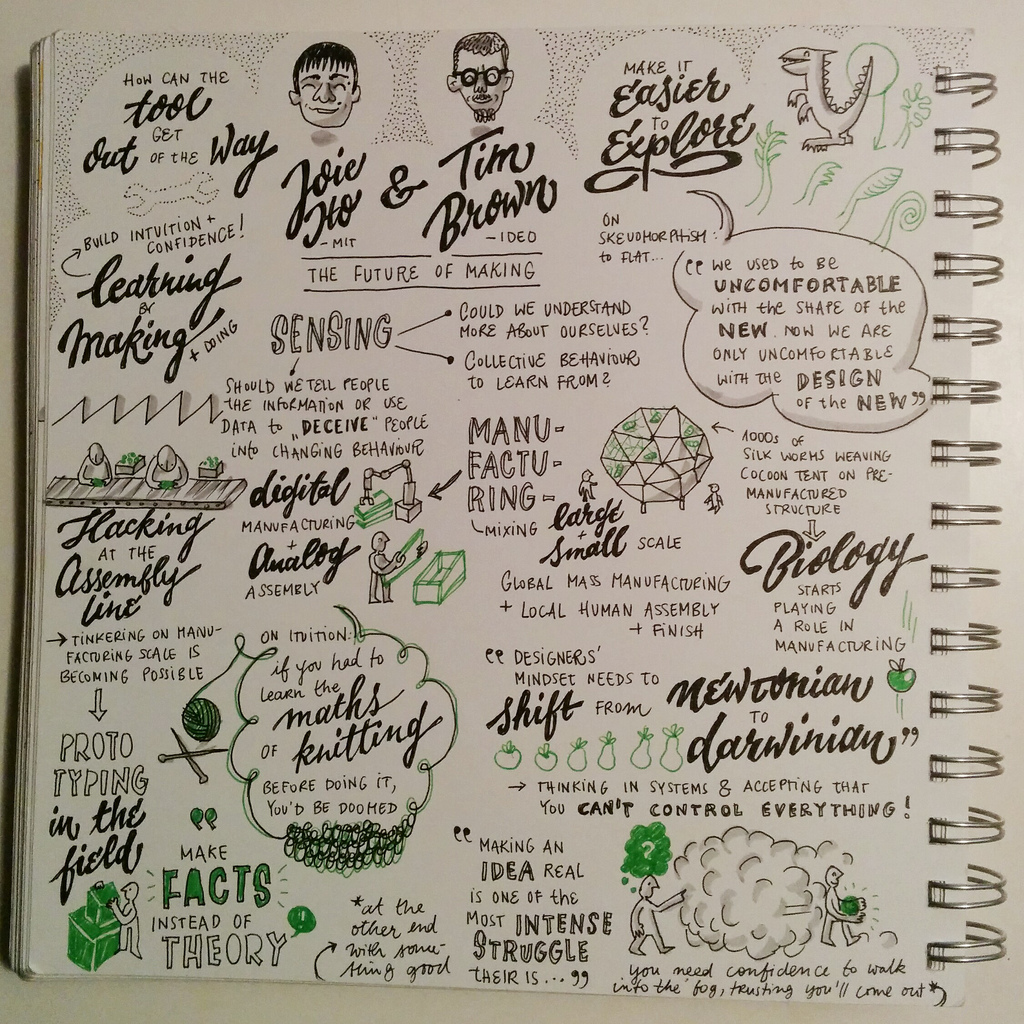 HOW CAN THE
tool
GET
out OF THE Way
Joie
Ito
- MIT
&
Tim
Brown
- IDEO
THE FUTURE OF MAKING
MAKE IT
Easier
TO
Explore
BUILD INTUITION +
CONFIDENCE!
learning
BY
Making
+ DOING
ON
SKEUOMORPHISM:
to FLAT...
"WE USED TO BE
UNCOMFORTABLE
WITH the SHAPE OF the
NEW. NOW WE ARE
ONLY UNCOMFORTABLE
WITH the DESIGN
OF the NEW"
SENSING
COULD WE UNDERSTAND
MORE ABOUT OURSELVES?
COLLECTIVE BEHAVIOUR
TO LEARN FROM?
SHOULD WE TELL PEOPLE
THE INFORMATION OR USE
DATA to "DECEIVE" PEOPLE
into CHANGING BEHAVIOUR
Hacking
AT THE
Assembly
line
→ TINKERING ON MANU-
FACTURING SCALE IS
BECOMING POSSIBLE
PROTO
TYPING
in the
field
digital
MANUFACTURING
+
Analog
ASSEMBLY
MANU-
FACTU-
RING-
MIXING large
+
Small SCALE
GLOBAL MASS MANUFACTURING
+ LOCAL HUMAN ASSEMBLY
+ FINISH
1000s OF
SILK WORMS WEAVING
COCOON TENT ON PRE-
MANUFACTURED
STRUCTURE
Biology
STARTS
PLAYING
A ROLE IN
MANUFACTURING
ON ITUITION:
if you had to
learn the
maths
OF knitting
BEFORE DOING IT,
YOU'D BE DOOMED
"DESIGNERS'
MINDSET NEEDS TO
shift FROM newtonian
TO
darwinian"
→ THINKING IN SYSTEMS & ACCEPTING THAT
YOU CAN'T CONTROL EVERYTHING!
"
MAKE
FACTS
INSTEAD OF
THEORY
"MAKING AN
IDEA REAL
IS ONE OF the
MOST INTENSE
STRUGGLE
THEIR IS..."
?
you need confidence to walk
into the fog, trusting you'll come out*
*at the
other end
with some-
thing good